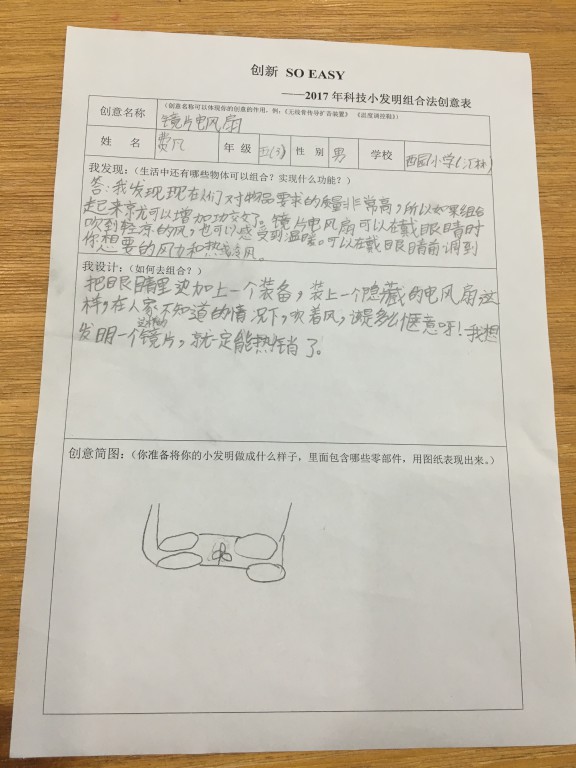 创新 SO EASY
——2017年科技小发明组合法创意表
创意名称 (创意名称可以体现你的创意的作用，例：《无线骨传导扩音装置》 《温度调控鞋》)
镜片电风扇
姓 名 费凡 年 级 五(3) 性 别 男 学校 西园小学(汇林)
我发现：(生活中还有哪些物体可以组合？实现什么功能？)
答：我发现现在人们对物品要求的质量非常高，所以如果组合
起来京尤可以增加功交文了。镜片电风扇可以在戴眼睛时
吹到轻凉的风，也可以感受到温暖。可以在戴眼睛前调到
你想要的风力和热或冷风。
我设计：(如何去组合？)
把眼睛里边加上一个装备，装上一个隐藏的电风扇这
样，在人家不知道的情况下，吹着风，该是多么惬意呀！我想
发明一个这样的镜片，就一定能热销了。
创意简图：(你准备将你的小发明做成什么样子，里面包含哪些零部件，用图纸表现出来。)